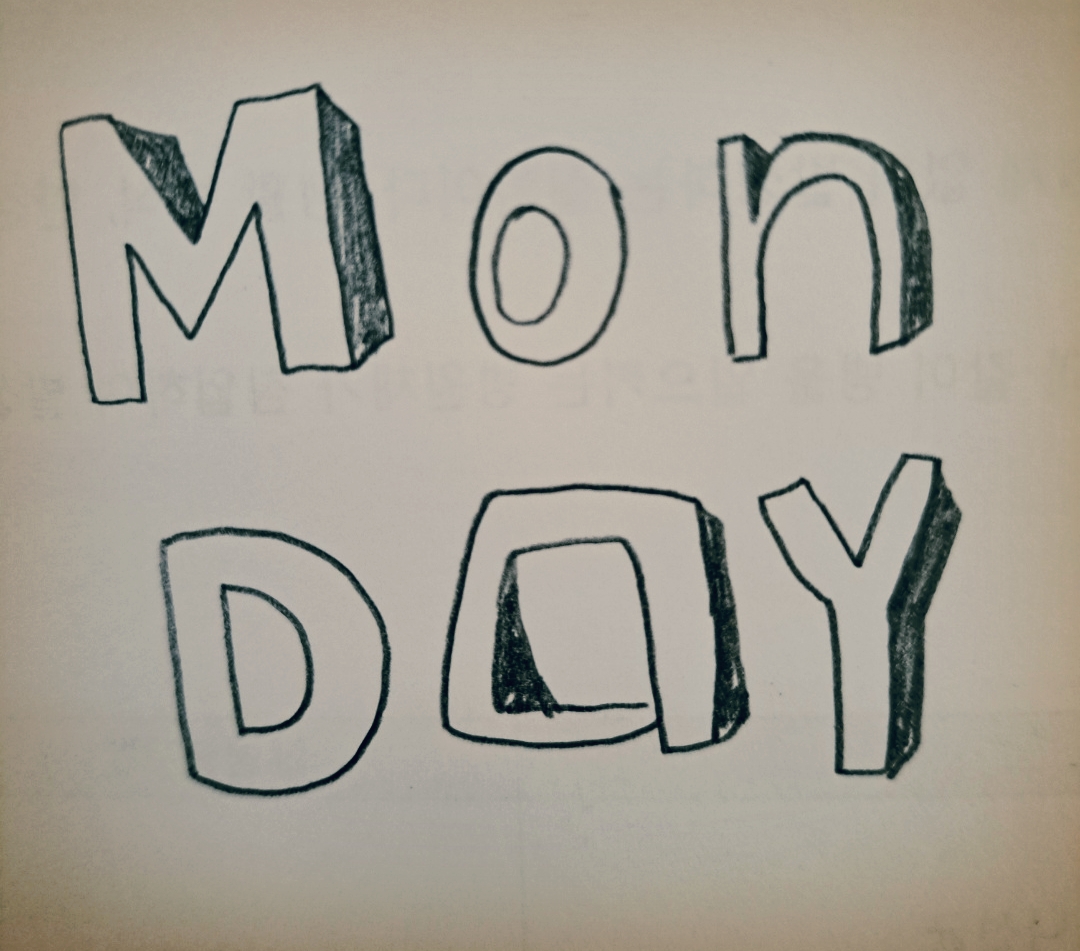 Mon
DaY